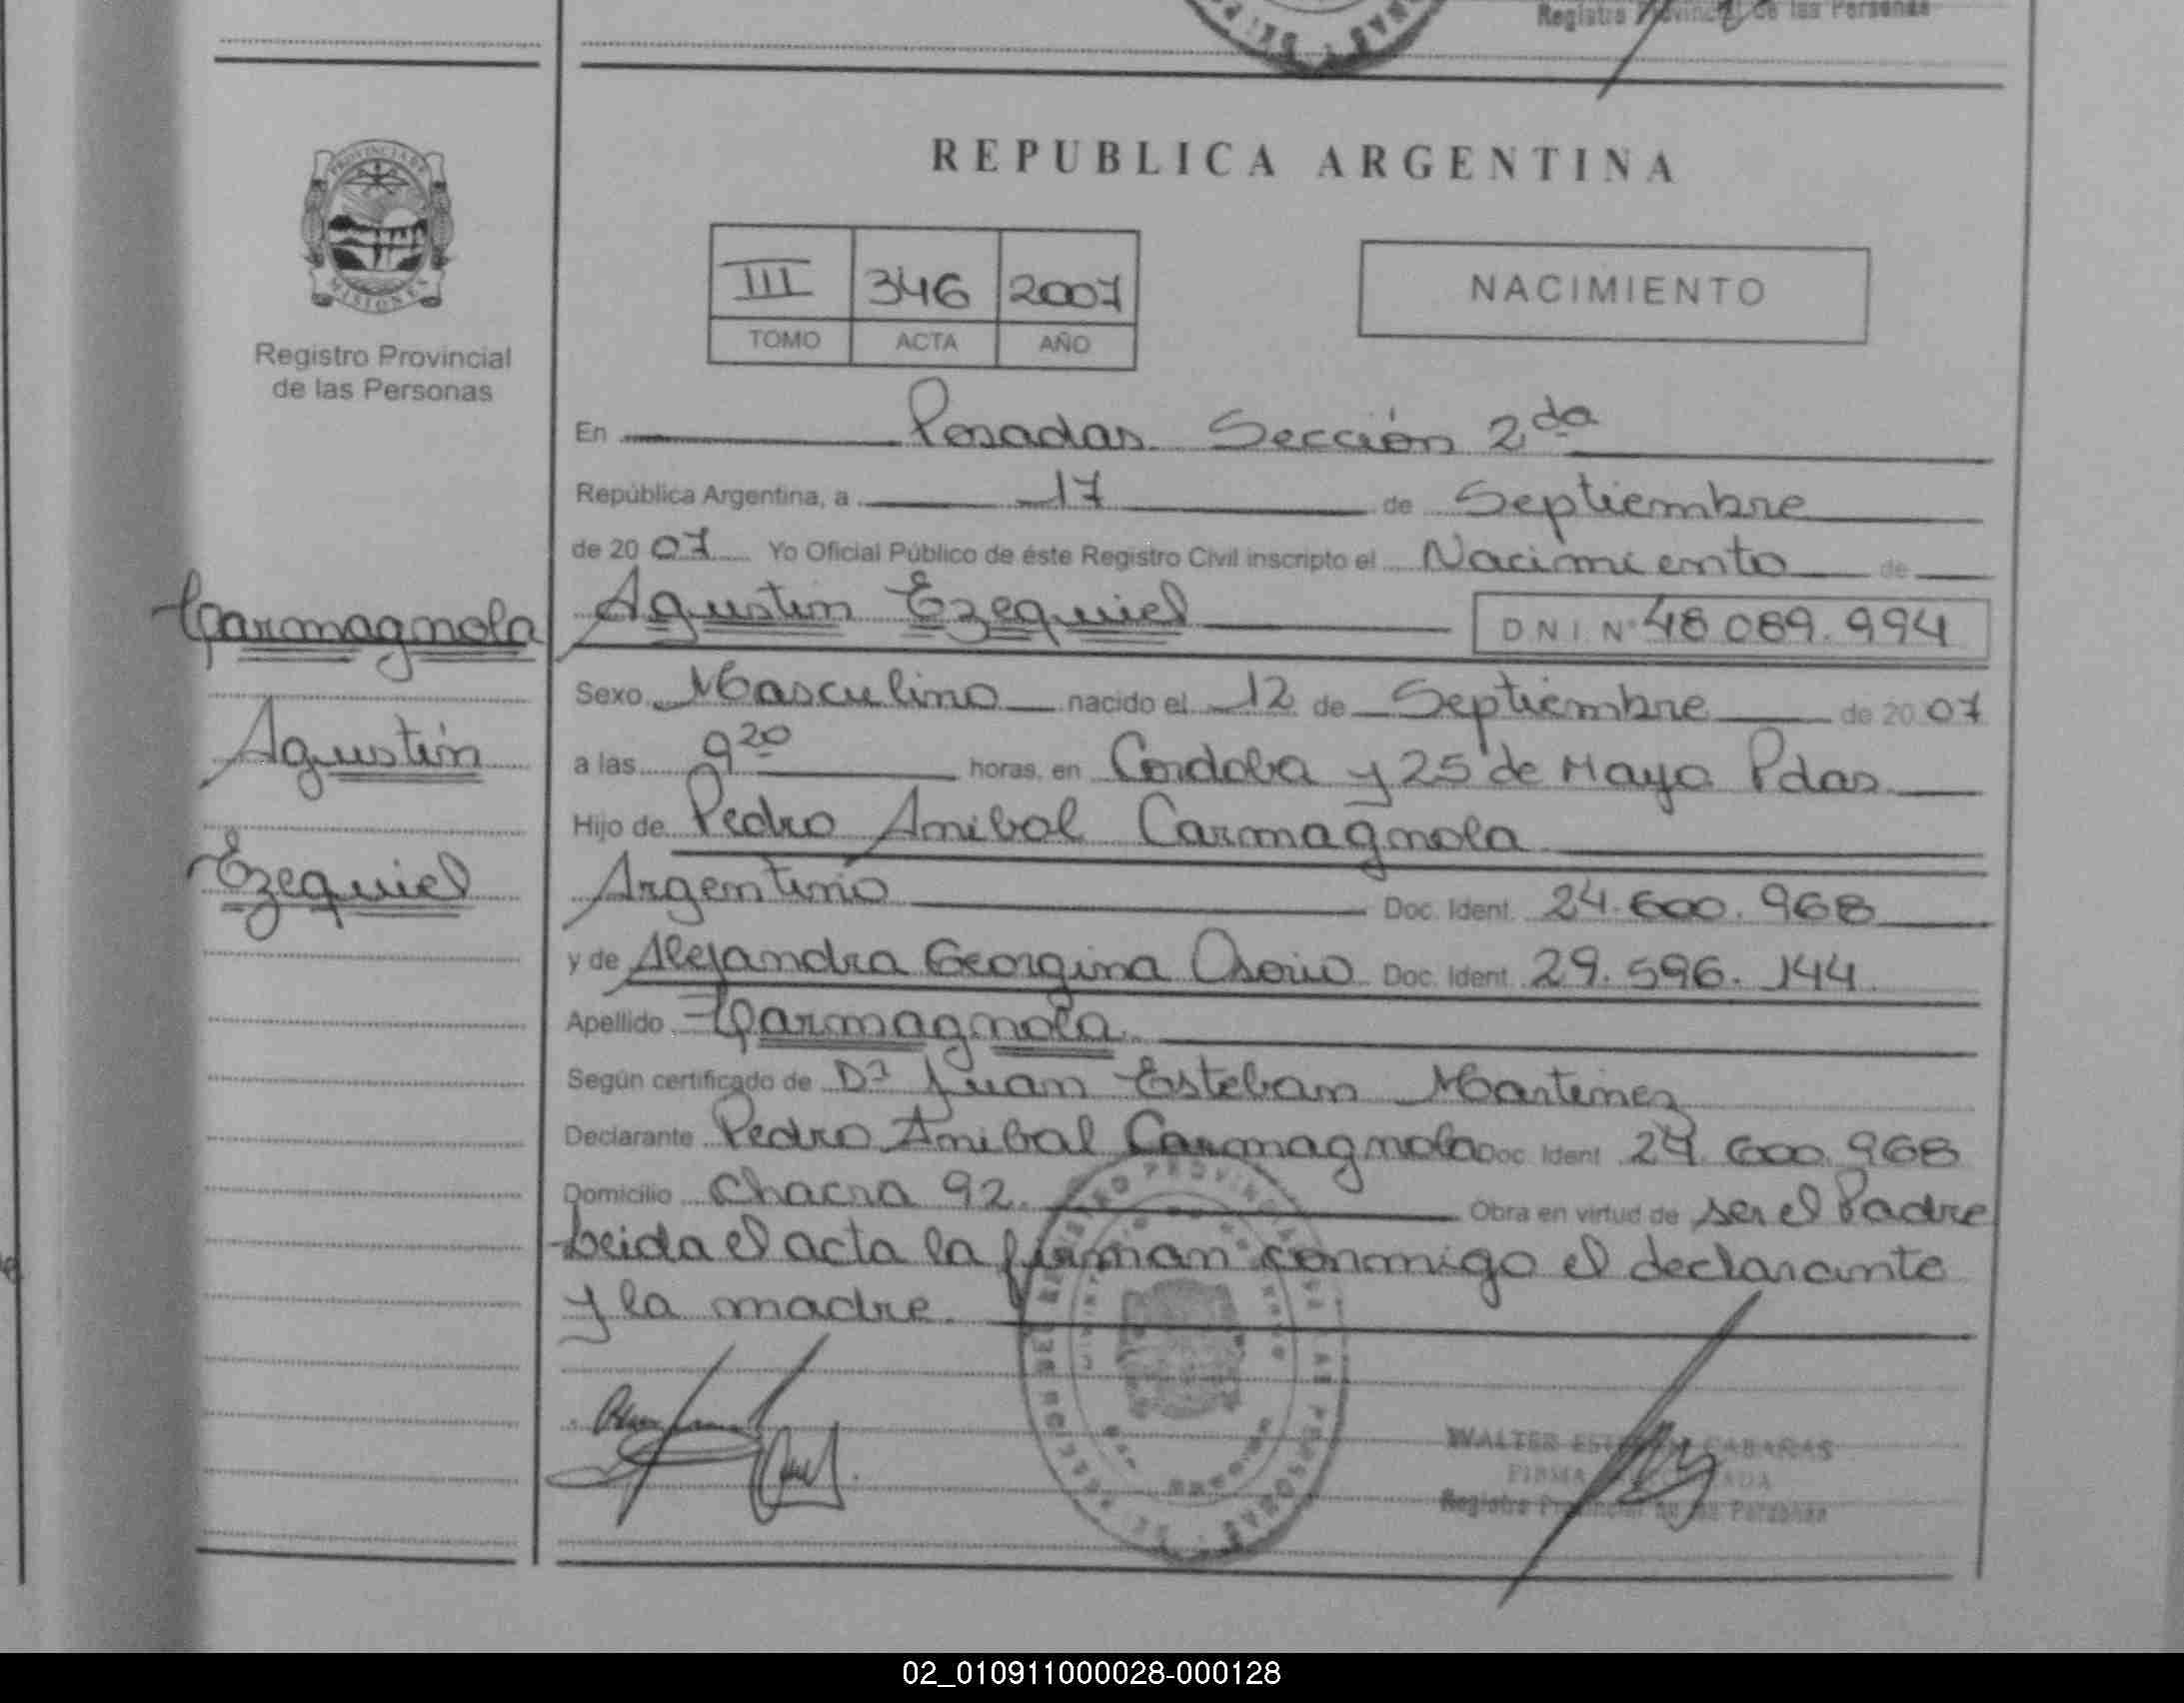 Registro Provincial de las Personas
PROVINCIA DE
MISIONES
Registro Provincial
de las Personas
REPUBLICA ARGENTINA
III 346 2007
TOMO ACTA AÑO
NACIMIENTO
En Posadas Sección 2da
República Argentina, a 17 de Septiembre
de 2007 Yo Oficial Público de éste Registro Civil inscripto el Nacimiento de
Carmagnola
Agustin Ezequiel DNI Nº 48 089.994
Sexo Masculino nacido el 12 de Septiembre de 2007
Agustín
a las 9 20 horas, en Cordoba y 25 de Mayo Pdas
Hijo de Pedro Anibal Carmagnola
Ezequiel
Argentino Doc. Ident. 24.600.968
y de Alejandra Georgina Osorio Doc. Ident. 29.596.144
Apellido Carmagnola
Según certificado de Dr Juan Esteban Martinez
Declarante Pedro Anibal Carmagnola Doc. Ident 24.600.968
Domicilio Chacra 92. Obra en virtud de ser el Padre
Leida el acta la firman conmigo el declarante
y la madre.
WALTER ESTEBAN CABAÑAS
FIRMA
Registro Provincial de las Personas
02_010911000028-000128